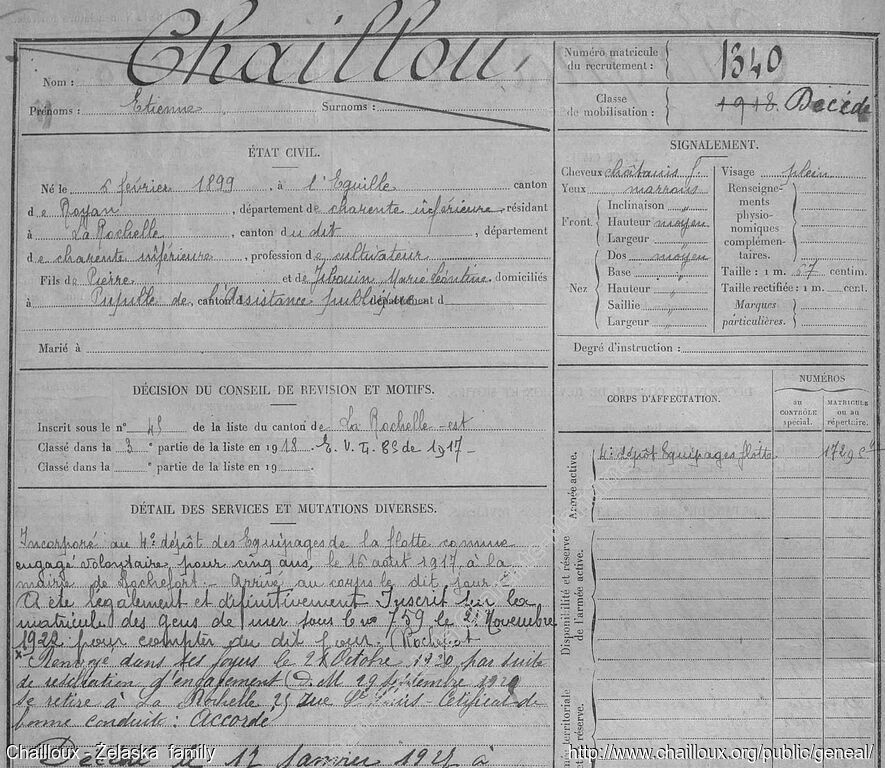 Chaillou
Nom :
Prénoms : Etienne Surnoms :
Numéro matricule
du recrutement : 1340
Classe
de mobilisation : 1918. Décédé
ÉTAT CIVIL.
Né le 6 février 1899, à l'Eguille canton
de Royan, département de charente inférieure, résidant
à La Rochelle, canton du dit, département
de charente inférieure, profession de cultivateur
Fils de Pierre et de Marie Léontine domiciliés
à Pupille de canton d l'Assistance publique département d
Marié à
SIGNALEMENT.
Cheveux châtains f. Visage plein
Yeux marrons
Front. Inclinaison "
Hauteur moyen
Largeur "
Nez Dos moyen
Base "
Hauteur "
Saillie "
Largeur "
Renseigne-
ments
physio-
nomiques
complémen-
taires.
Taille : 1 m. 67 centim.
Taille rectifiée : 1 m. cent.
Marques
particulières.
Degré d'instruction :
DÉCISION DU CONSEIL DE REVISION ET MOTIFS.
Inscrit sous le n° 45 de la liste du canton de La Rochelle-est
Classé dans la 3 ° partie de la liste en 1918. E. V. 83 de 1917-
Classé dans la ° partie de la liste en 19
CORPS D'AFFECTATION.
NUMÉROS
au
CONTRÔLE
spécial.
MATRICULE
ou au
répertoire.
Armée active.
4e dépôt Equipages flotte 1729
Disponibilité et réserve
de l'armée active.
territoriale
réserve.
DÉTAIL DES SERVICES ET MUTATIONS DIVERSES.
Incorporé au 4e dépôt des Equipages de la flotte comme
engagé volontaire pour cinq ans, le 16 août 1917 à la
mairie de Rochefort - Arrivé au corps le dit jour
A été légalement et définitivement Inscrit sur la
matricule des gens de mer sous le no 759 le Novembre
1922 pour compter du dit jour (Rochefort
x Renvoyé dans ses foyers le 21 Octobre 1920 par suite
de résiliation d'engagement (D.M 29 septembre
se retire à La Rochelle 25 rue St - Cetificat de
bonne conduite : Accordé
Décédé le 17 Janvier à
Chailloux - Żelaska family
http://www.chailloux.org/public/geneal/